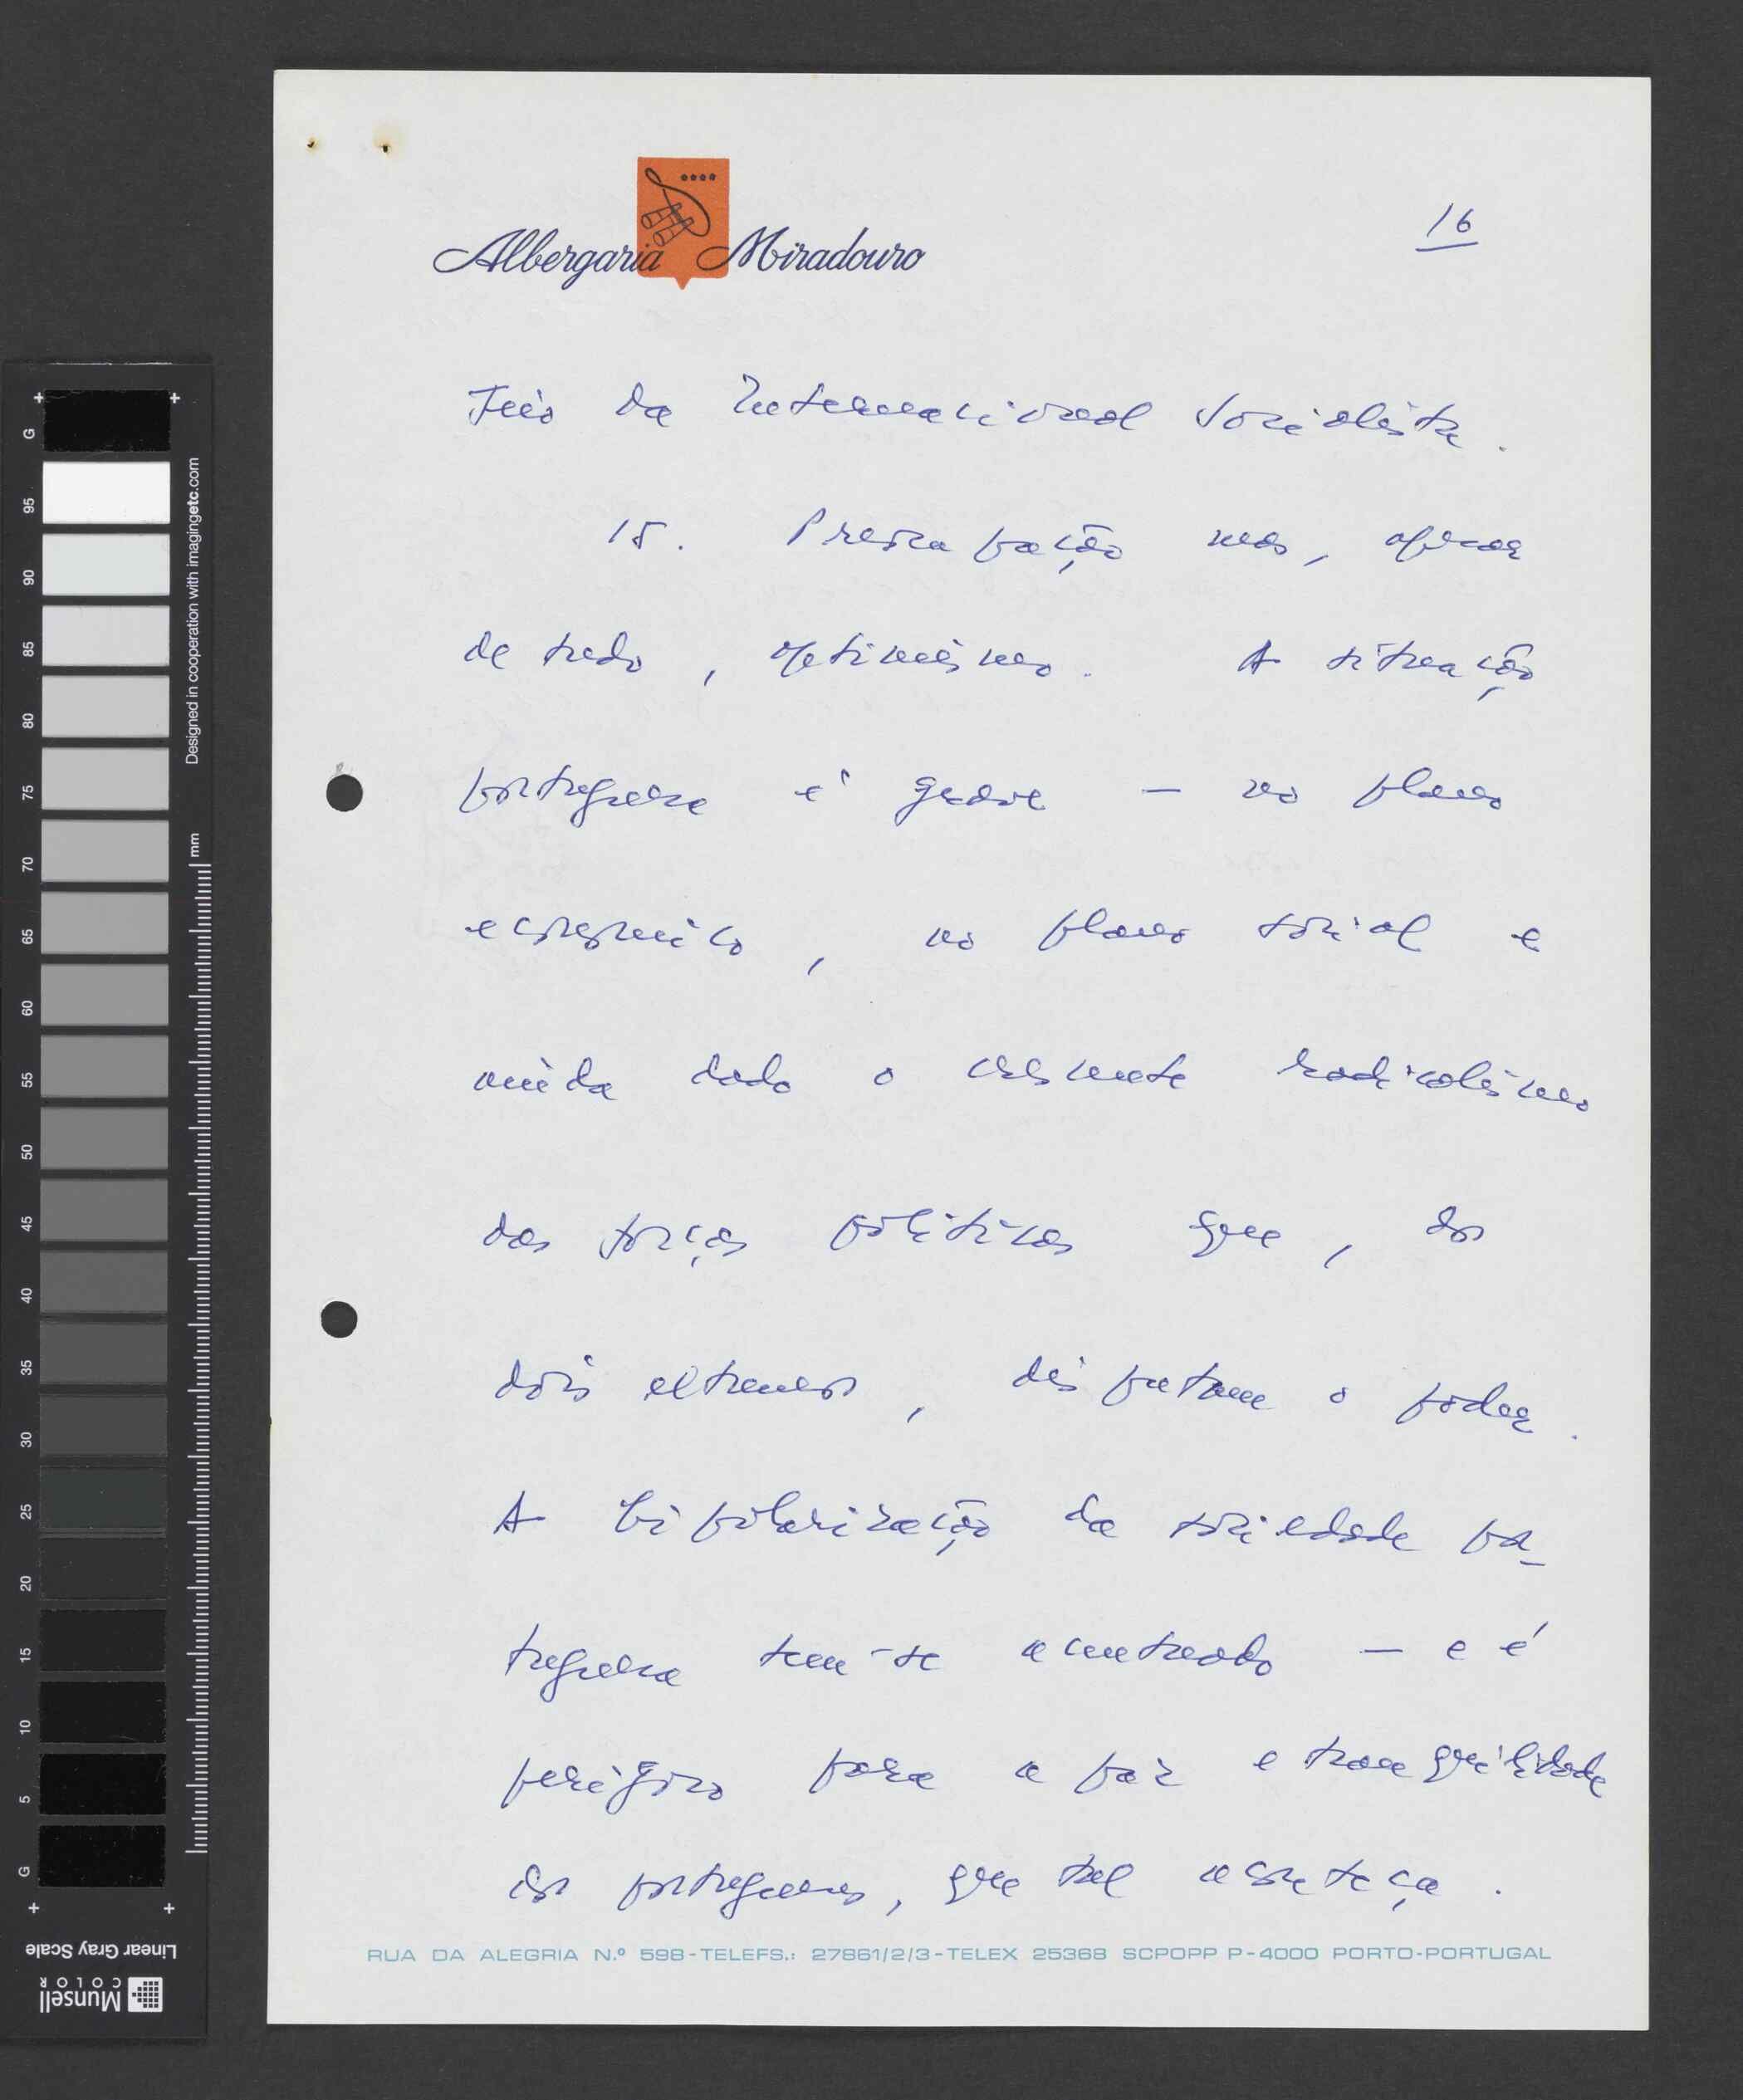 Albergaria Miradouro
16
da Internacional Socialista.
15. Preocupação mas, apesar
de tudo, optimismo. A situação
portuguesa é grave — no plano
económico, no plano social e
ainda dado o crescente radicalismo
das forças políticas que, dos
dois extremos, disputam o poder.
A bipolarização da sociedade por-
tuguesa tem-se acentuado — e é
perigoso para a paz e tranquilidade
dos portugueses, que tal aconteça.
RUA DA ALEGRIA N.º 598-TELEFS.: 27861/2/3-TELEX 25368 SCPOPP P-4000 PORTO-PORTUGAL
G
95
90
85
80
75
70
65
60
55
50
45
40
35
30
25
20
15
10
5
G
Designed in cooperation with imagingetc.com
mm
Linear Gray Scale
Munsell
COLOR